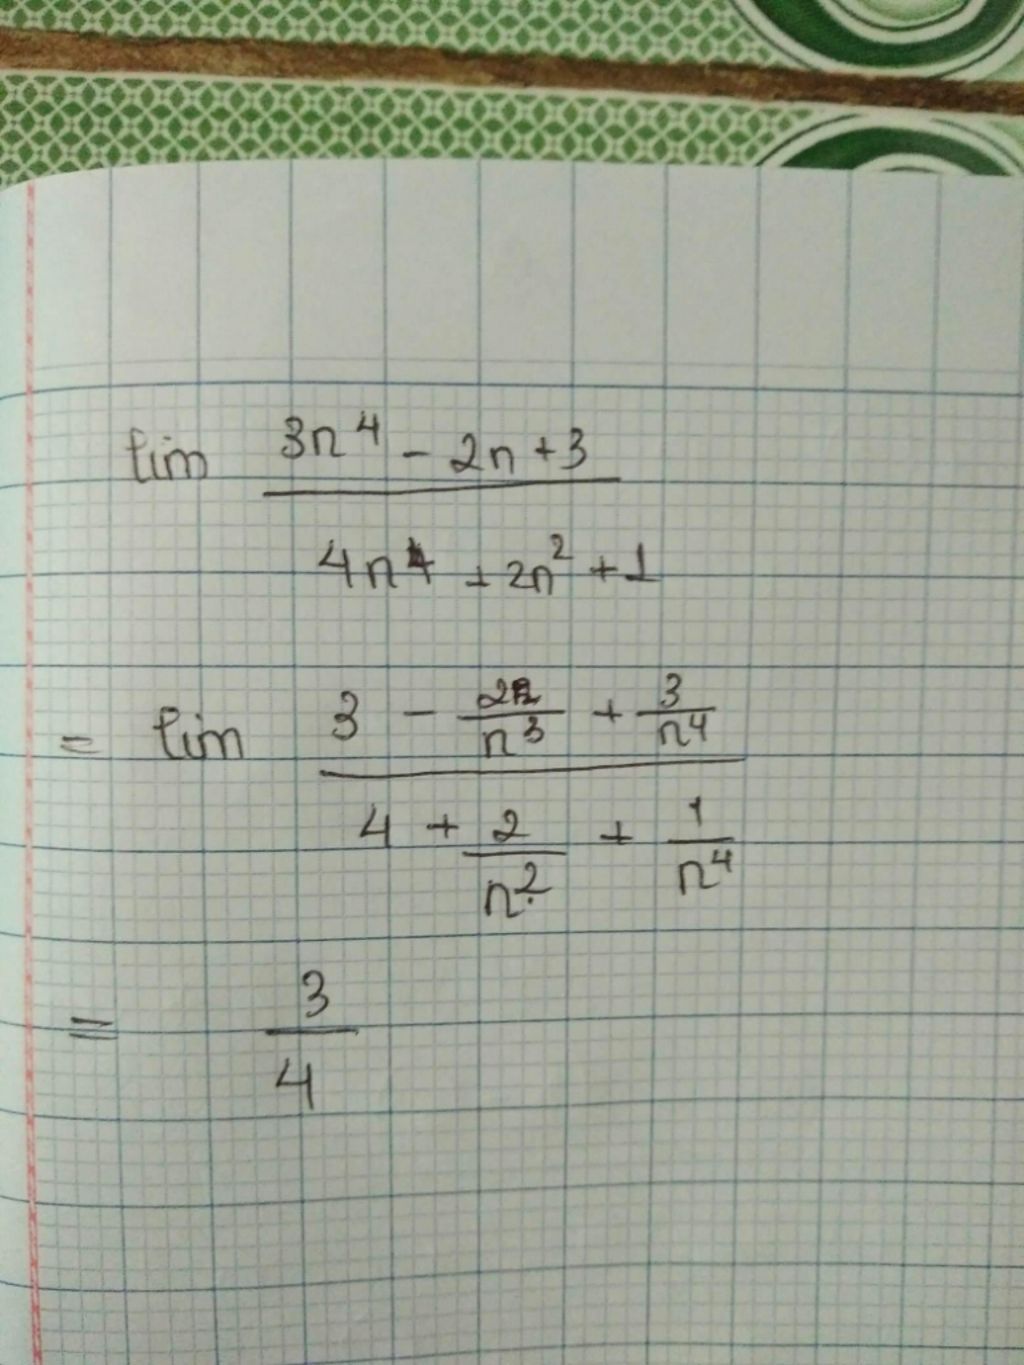 lim (3n⁴ - 2n + 3) / (4n⁴ + 2n² + 1)
= lim (3 - 2/n³ + 3/n⁴) / (4 + 2/n² + 1/n⁴)
= 3/4